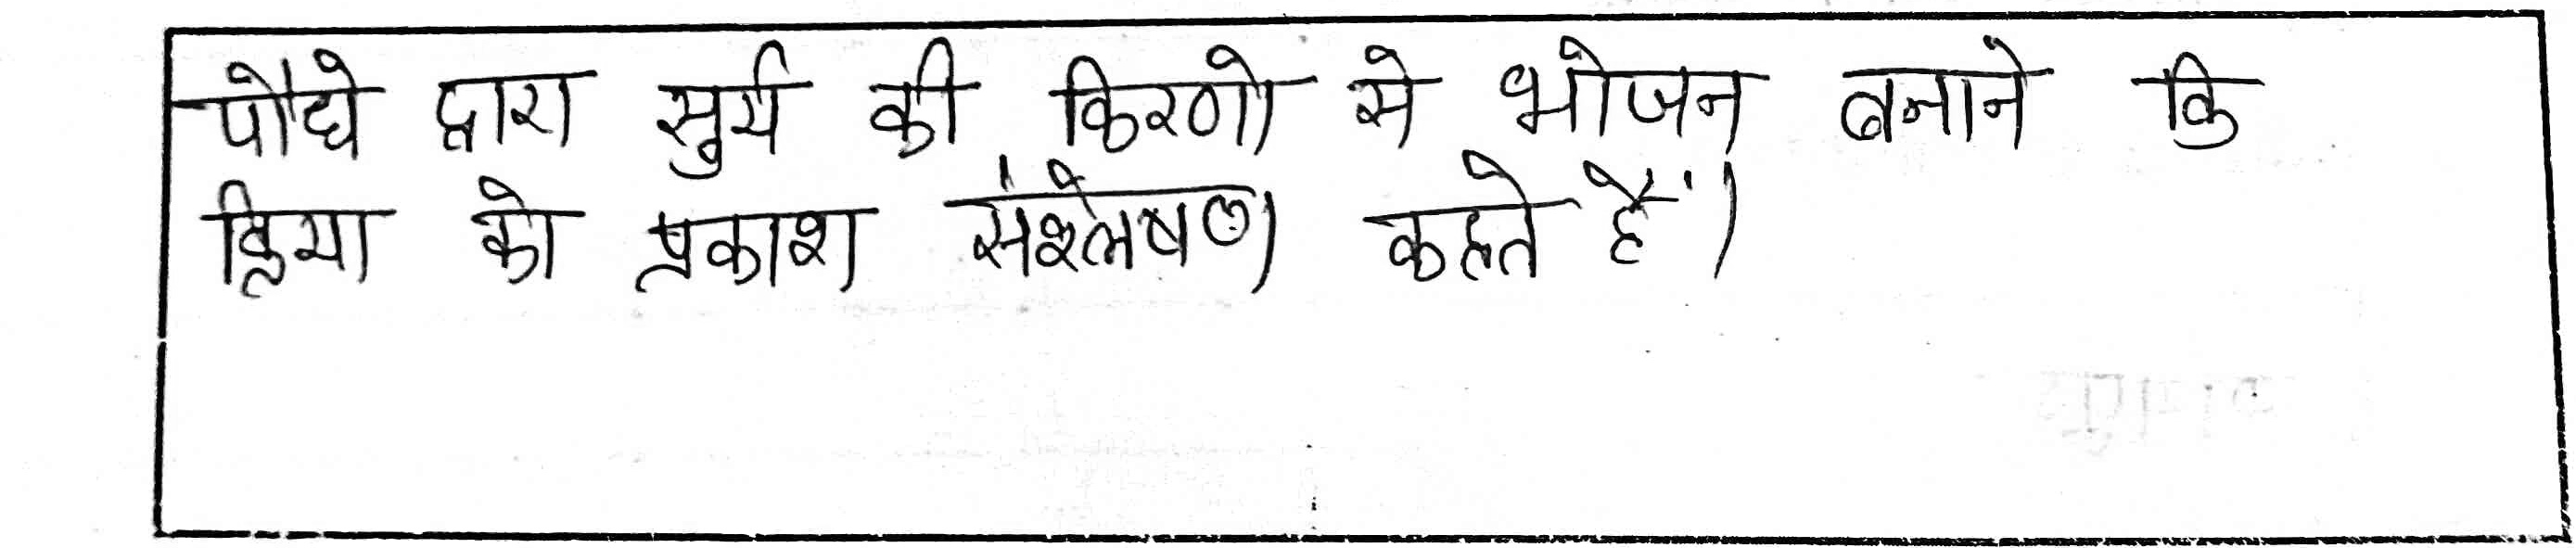 पौधे द्वारा सुर्य की किरणो से भोजन बनाने कि
क्रिया को प्रकाश संश्लेषण कहते हैं।